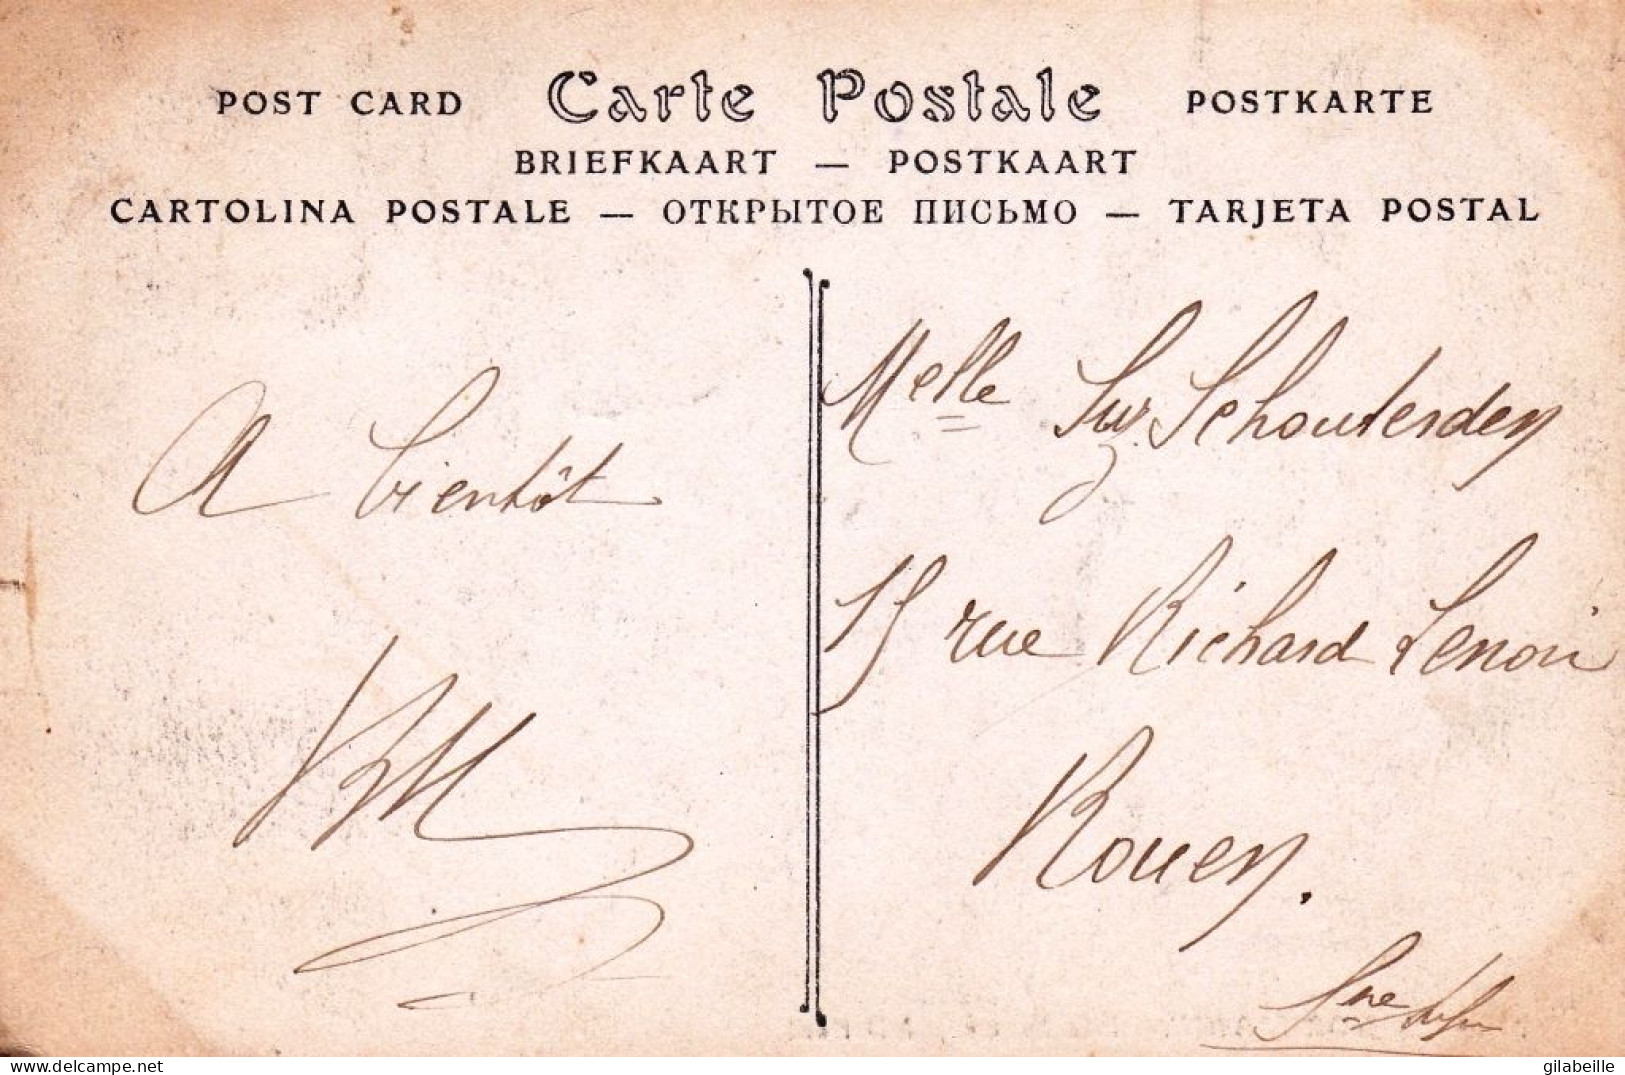 POST CARD Carte Postale POSTKARTE
BRIEFKAART — POSTKAART
CARTOLINA POSTALE — ОТКРЫТОЕ ПИСЬМО — TARJETA POSTAL
A bientôt
Melle Suz. Schouterden
15 rue Richard Lenoir
Rouen.
Sne Infre
delcampe.net
gilabeille